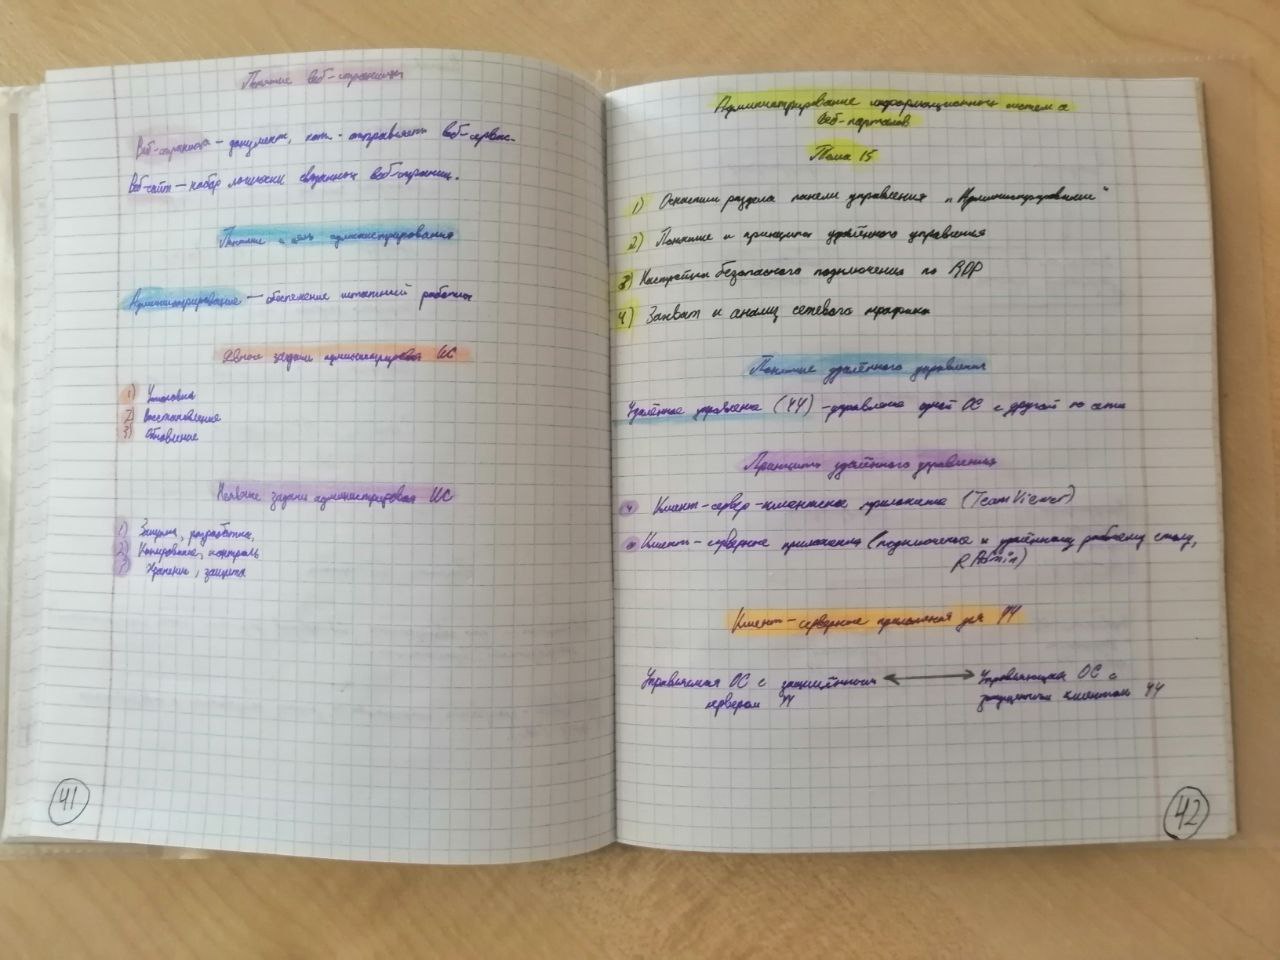 Понятие веб-страницы
Веб-страница — документ, кот. отправлять веб-сервис.
Веб-сайт — набор логически связанной веб-страниц.
Понятие и цель администрирования
Администрирование — обеспечение штатный работы
задачи администрирован ИС
1) Установка
2) Восстановление
3) Обновление
задачи администрирован ИС
1) Защита, разработки,
2) Копирование, контроль
3) Хранение, защита
41
Администрирование информационных систем и
веб-порталов
Тема 15
1) Оснастки раздела панели управления "Администрирований"
2) Понятие и принципы удалённого управления
3) Настройка безопасного подключения по RDP
4) Захват и анализ сетевого трафика
Понятие удалённого управления
Удалённое управление (УУ) - управление одной ОС с другой по сети
Принципы удалённого управления
Клиент-сервер-клиентское приложение (TeamViewer)
Клиент-серверное приложения (подключение к удалённому рабочему столу,
RAdmin)
Клиент-серверное приложения для УУ
Управляемая ОС с запущенным
сервером УУ
Управляющая ОС с
запущенным клиентом УУ
42